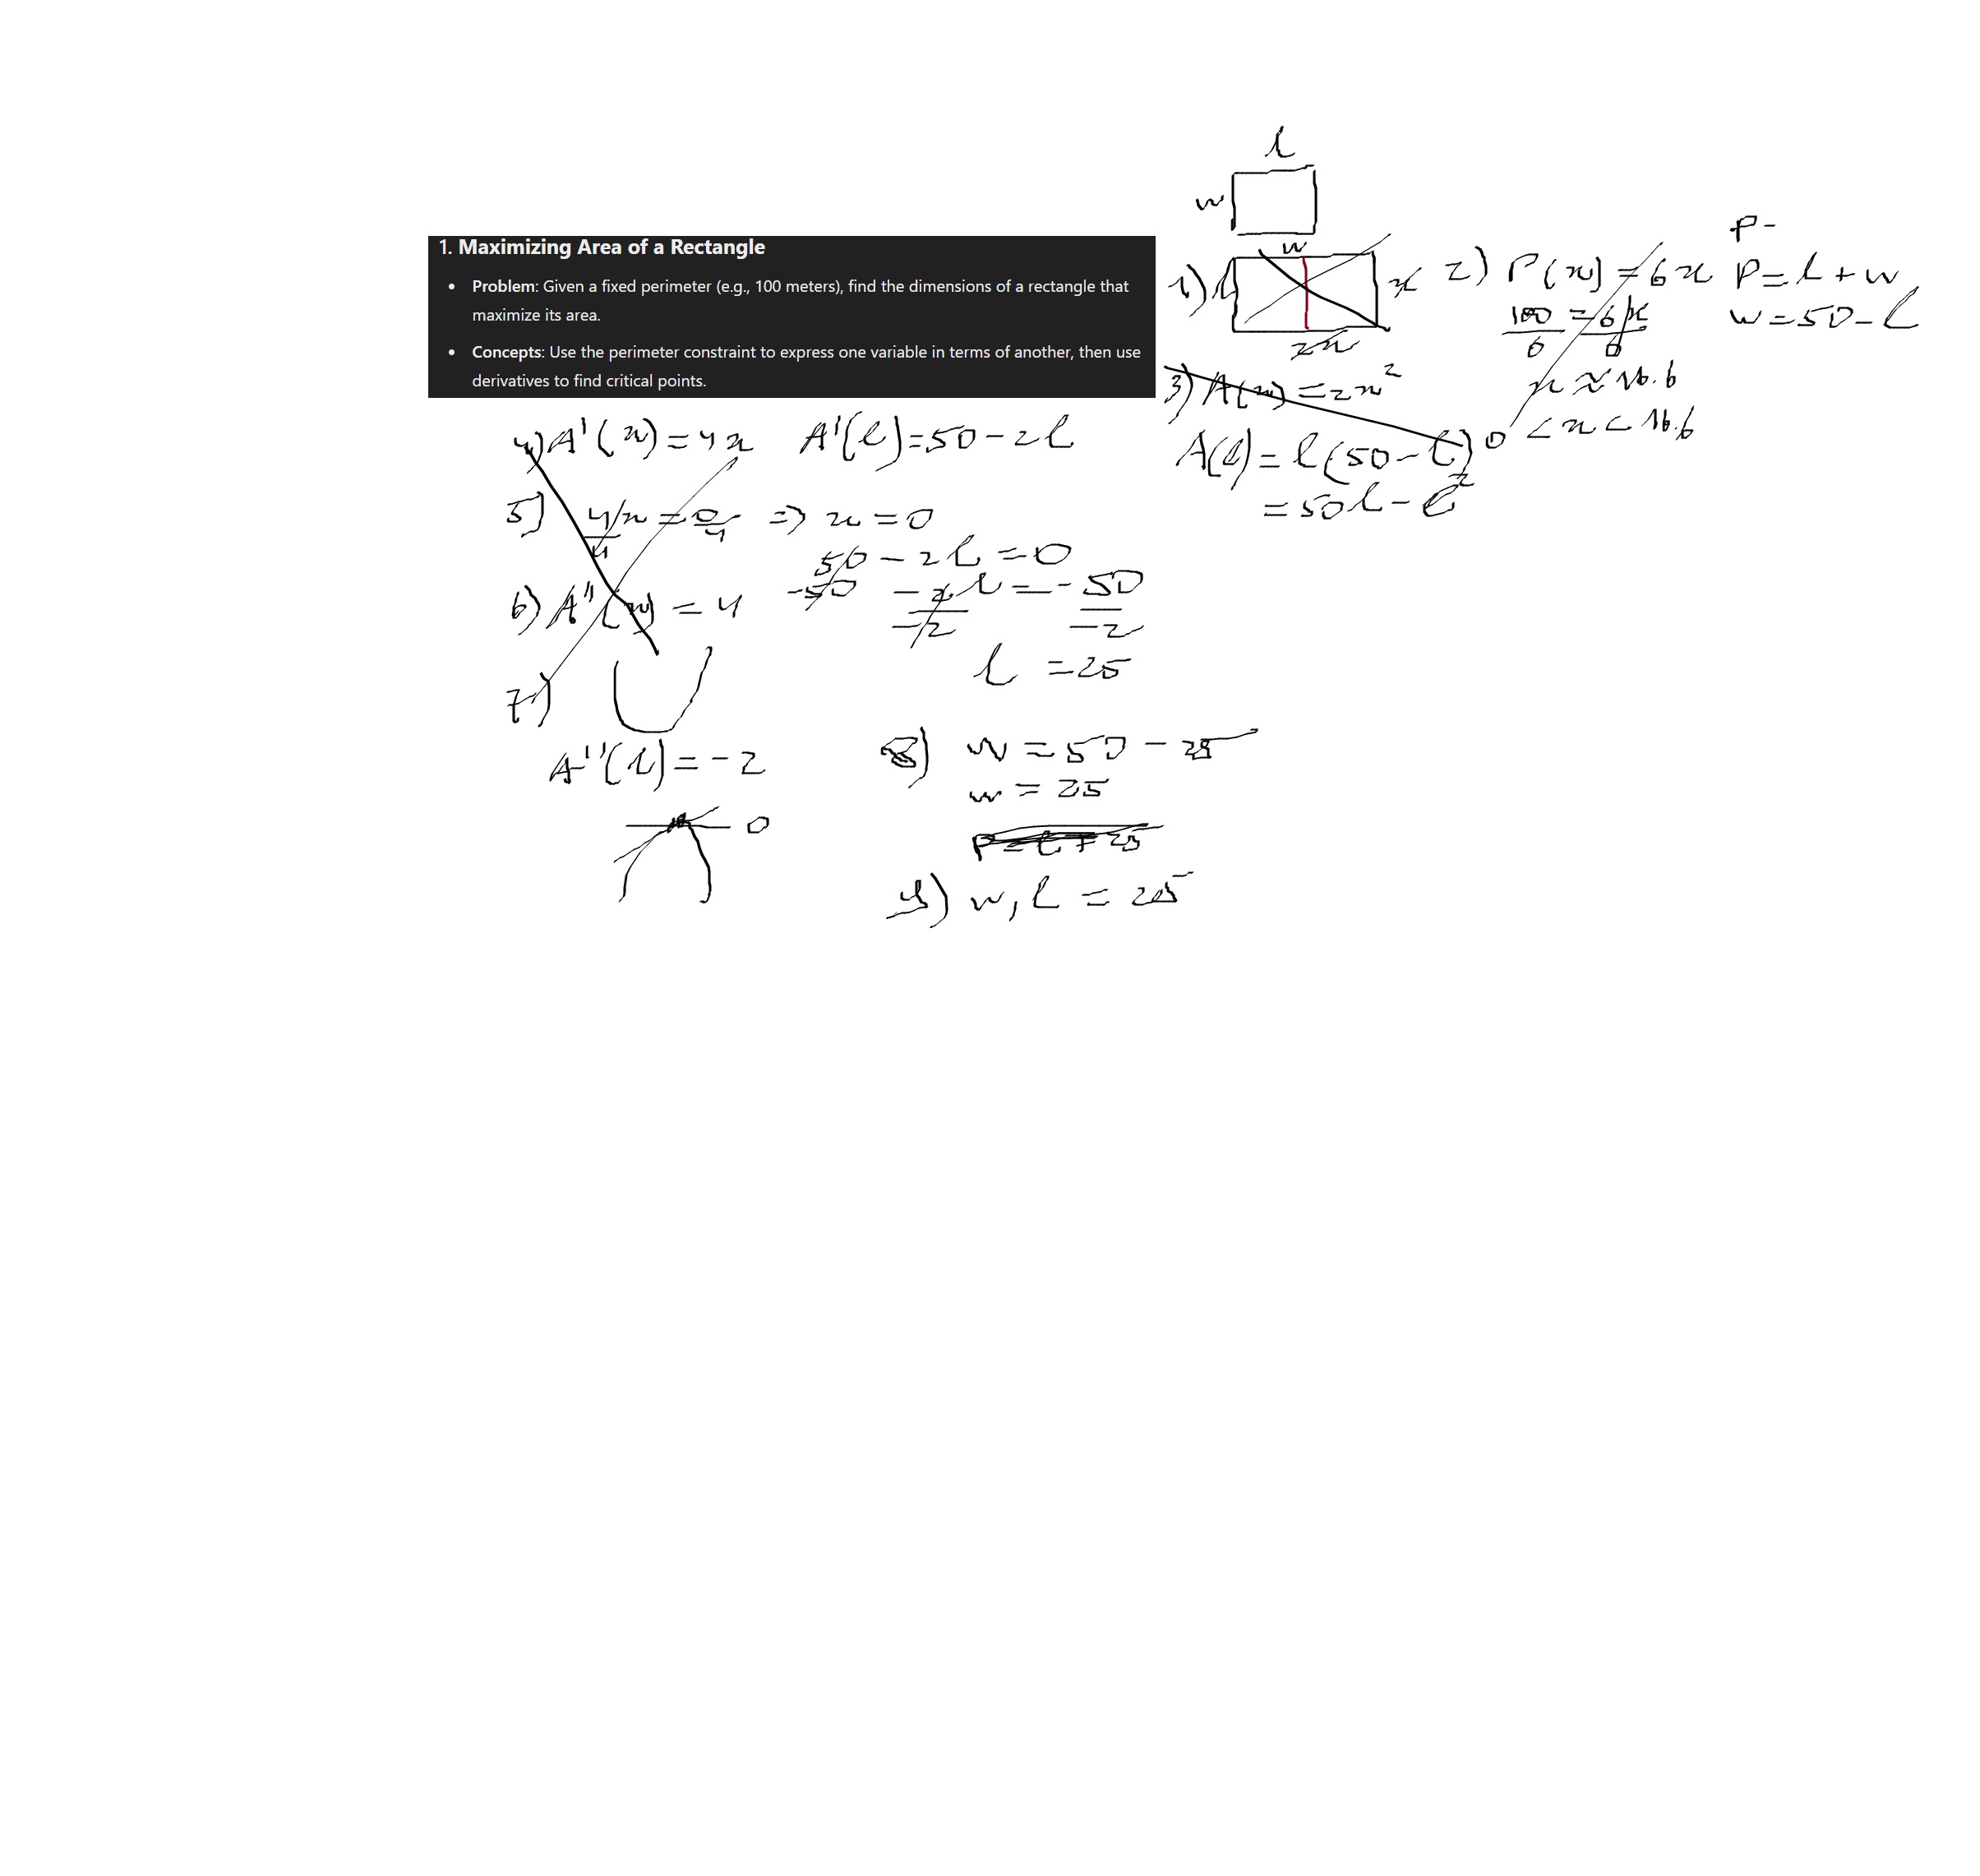 1. Maximizing Area of a Rectangle
• Problem: Given a fixed perimeter (e.g., 100 meters), find the dimensions of a rectangle that
maximize its area.
• Concepts: Use the perimeter constraint to express one variable in terms of another, then use
derivatives to find critical points.
l
w
w
1) l
x
2x
2) P(x) = 6x
100 = 6x
6 6
x ≈ 16.6
0 < x < 16.6
P-
P = l + w
w = 50 - l
3) A(x) = 2x²
A(l) = l(50 - l)
= 50l - l²
4) A'(x) = 4x
A'(l) = 50 - 2l
5) 4x = 0 => x = 0
4 4
50 - 2l = 0
-50 -2l = -50
-2 -2
l = 25
6) A''(x) = 4
7)
A''(l) = -2
0
8) w = 50 - 25
w = 25
P = l + 25
9) w, l = 25